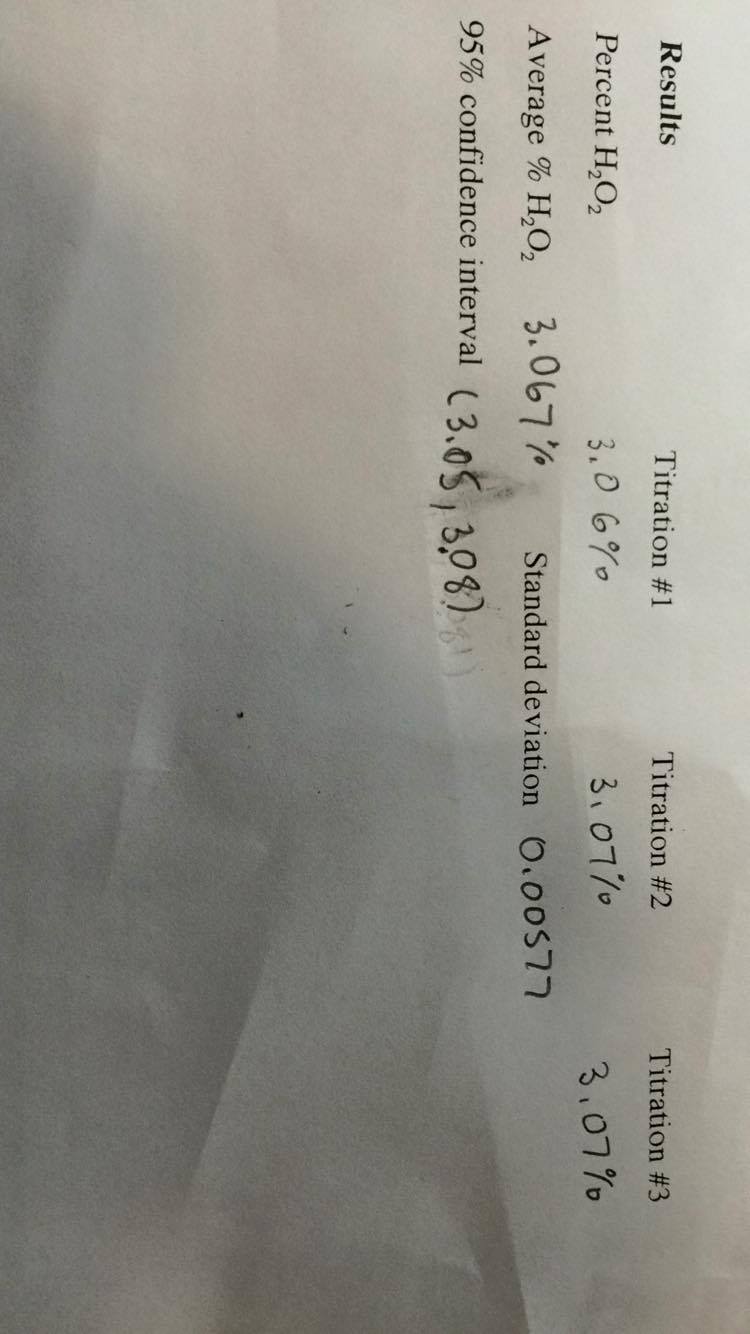 Results Titration #1 Titration #2 Titration #3
Percent H₂O₂ 3.06% 3.07% 3.07%
Average % H₂O₂ 3.067% Standard deviation 0.00577
95% confidence interval (3.05, 3.08)